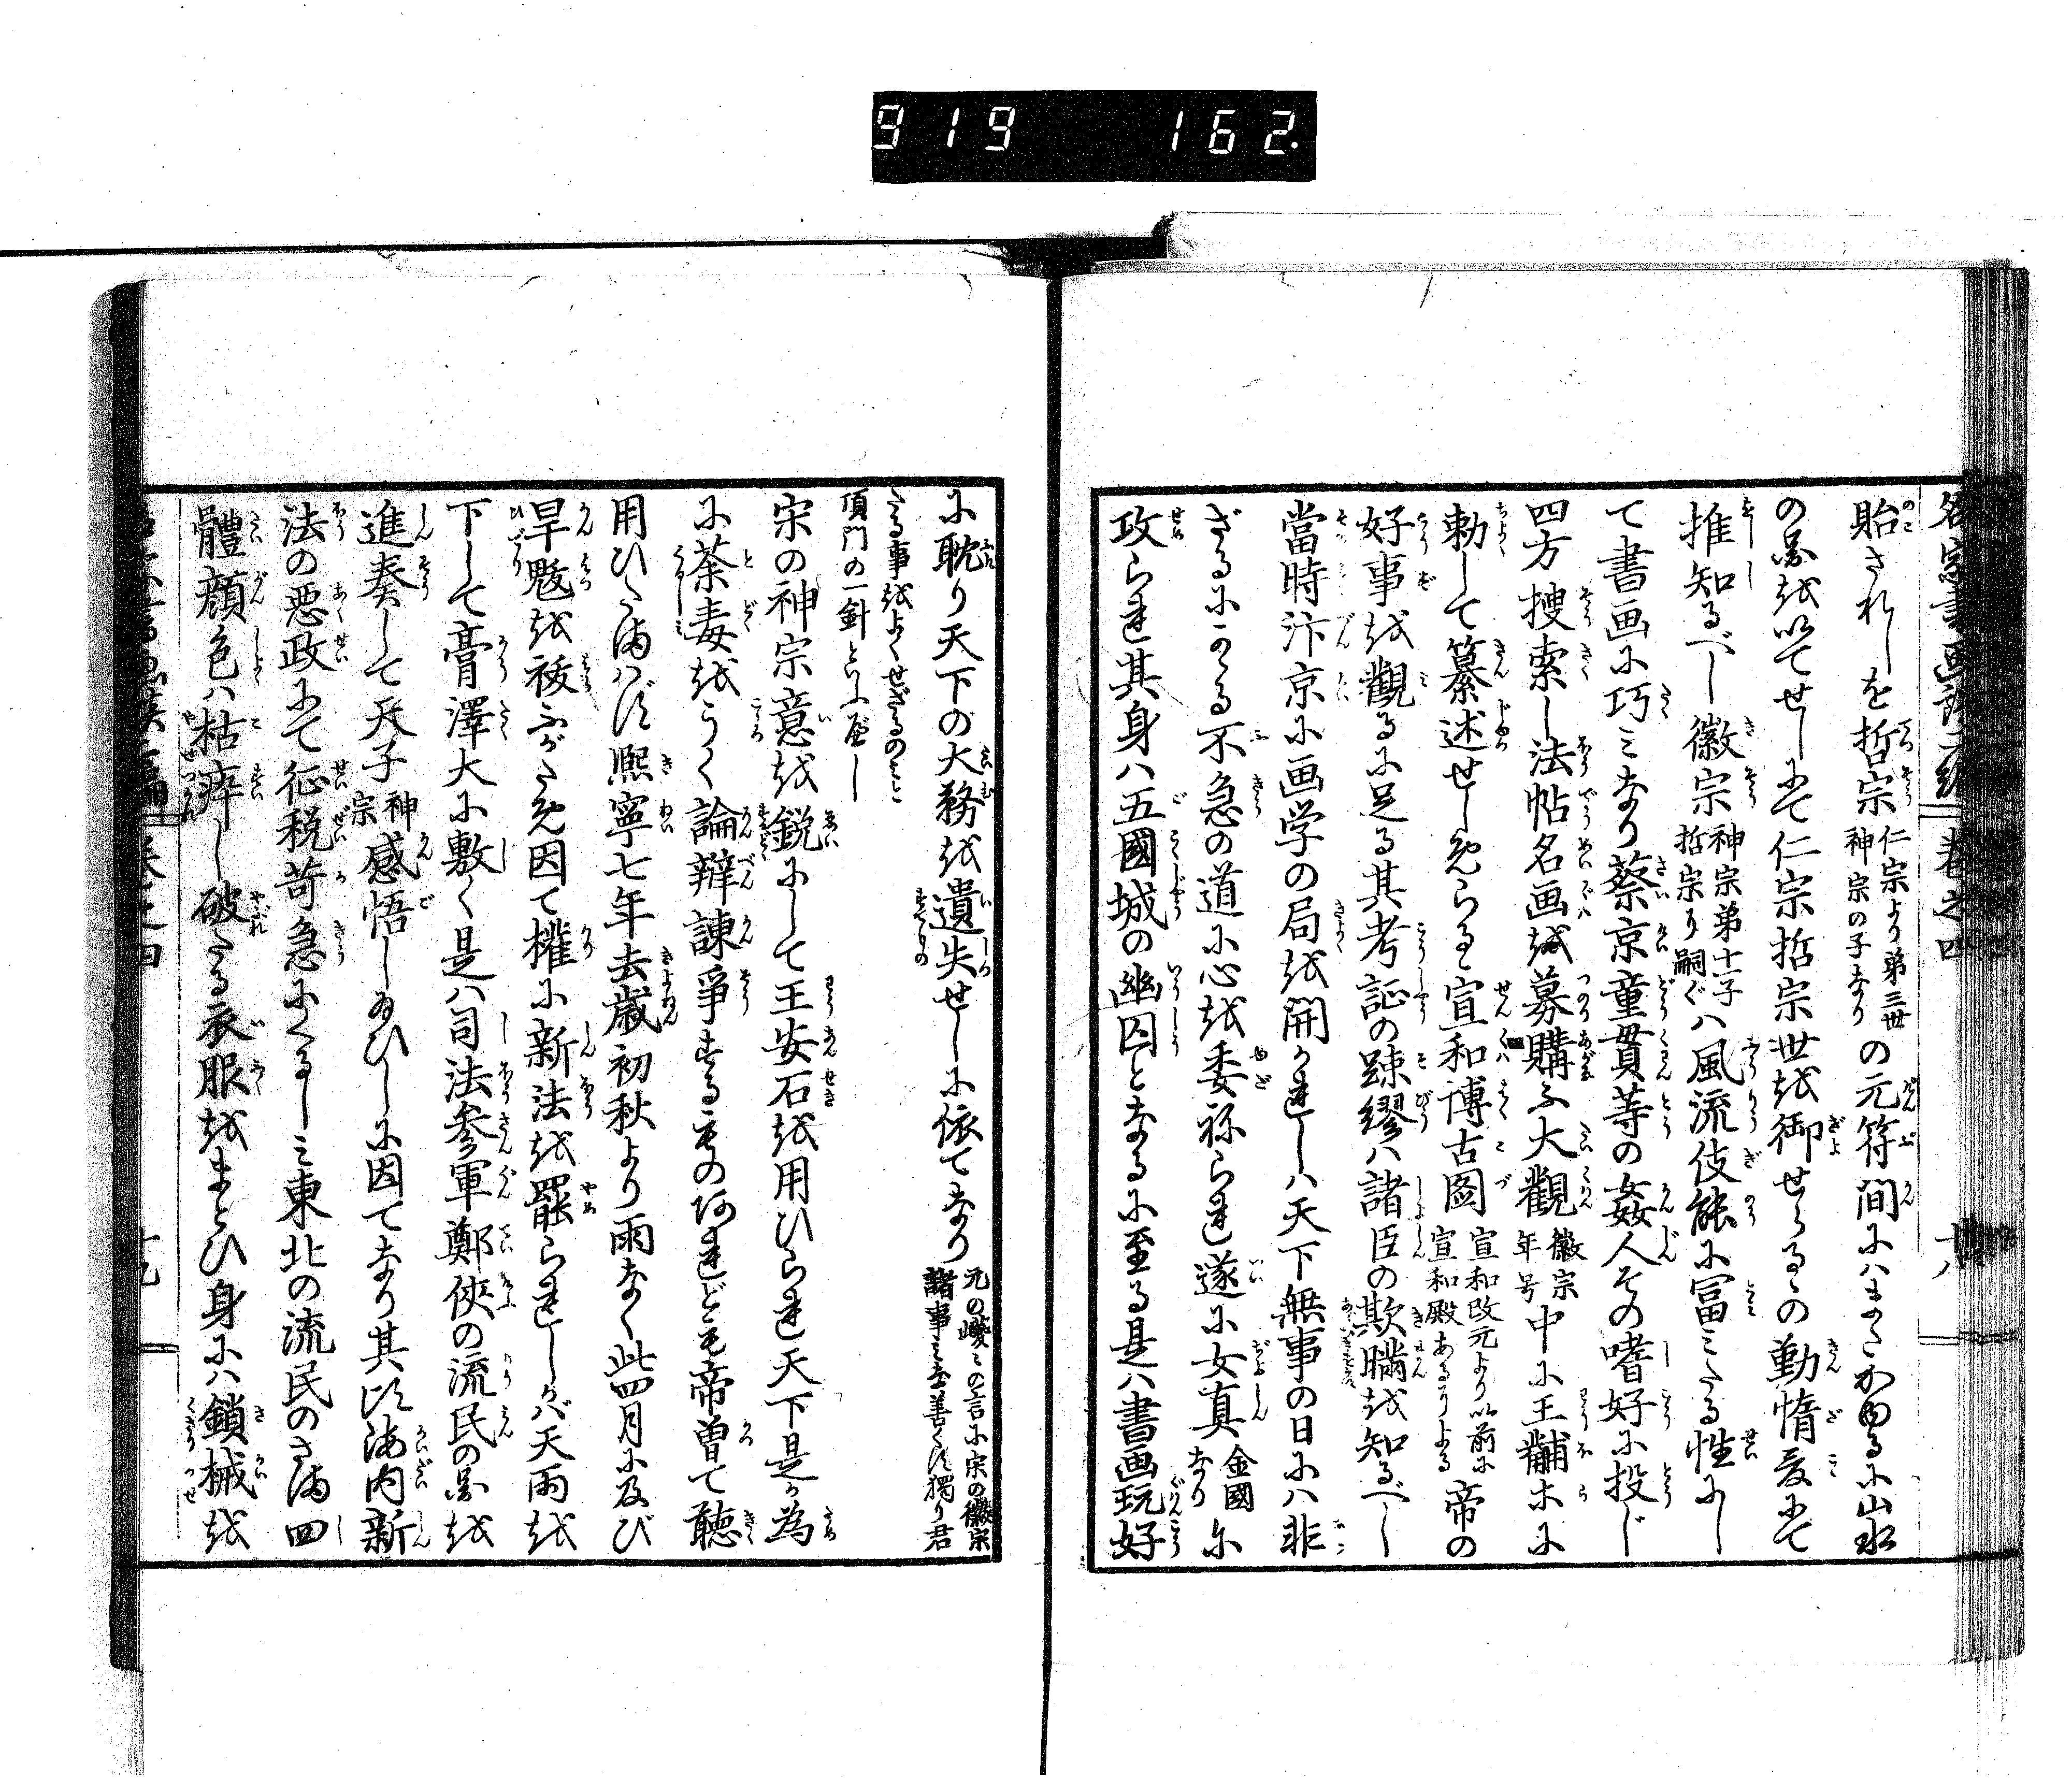 919 162.
貽されしを哲宗仁宗より弟三世神宗の子なりの元符間にハまたかゆるに山水
の図を以てせしにて仁宗哲宗世を御せらるゝの勤惰爰にて
推知るべし徽宗神宗弟十一子哲宗り嗣ぐハ風流伎能に冨ミたる性にし
て書画に巧ミなり蔡京童貫等の姦人その嗜好に投じ
四方捜索し法帖名画を募購ふ大觀徽宗年号中に王黼ホに
勅して纂述せしめらる宣和博古圖宣和改元より以前に宣和殿あるりよる帝の
好事を觀るに足る其考証の踈繆ハ諸臣の欺瞞を知るべし
當時汴京に画学の局を開かれしハ天下無事の日にハ非
ざるにかゝる不急の道に心を委ねられ遂に女真金國なりに
攻られ其身ハ五國城の幽囚となるに至る是ハ書画玩好
に耽り天下の大務を遺失せしに依てなり元の巙々の言に宋の徽宗諸事ミな善くす獨り君
たる事をよくせざるのミと
頂門の一針といふ屋し
宋の神宗意を鋭にして王安石を用ひられ天下是が為
に荼毒をうく論辯諌爭するもの阿れども帝曽て聴
用ひたまハず熙寧七年去歳初秋より雨なく此四月に及び
旱魃を祓ふがため因て權に新法を罷られしかバ天雨を
下して膏澤大に敷く是ハ司法参軍鄭侠の流民の図を
進奏して天子神宗感悟し給ひしに因てなり其比海内新
法の悪政にて征税苛急にくるしミ東北の流民のさま四
體顔色ハ枯瘁し破たる衣服をまとひ身にハ鎖械を